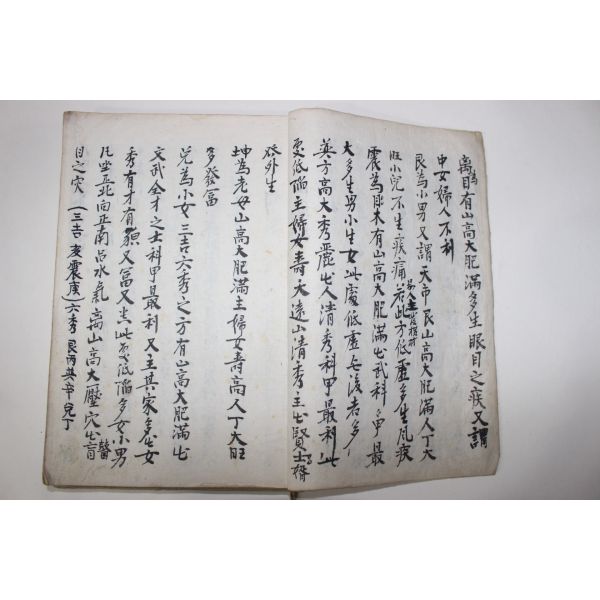 離為目有山高大肥滿多生眼目之疾又謂
中女婦人不利
艮為小男又謂天市艮山高大肥滿人丁大
旺小兒不生疾痛若此方低虛多生風疾
震為 木有山高大肥滿出武科甲最
大多生男小生女此處低虛無後者多
英方高大秀麗出人清秀科甲最利此
處低陷主婦女壽夭遠山清秀主出賢士婿
外生
坤為老母山高大肥滿主婦女壽高人丁大旺
多發富
兌為小女三吉六秀之方有山高大肥滿出
文武全才之士科甲最利又主其家多出女
秀有才有貌又富又 此處低陷多女小男
凡坐正北向正南 水氣离山高大壓穴出盲
目之穴 (三吉 亥震庚) 六秀 艮丙巽辛兌丁